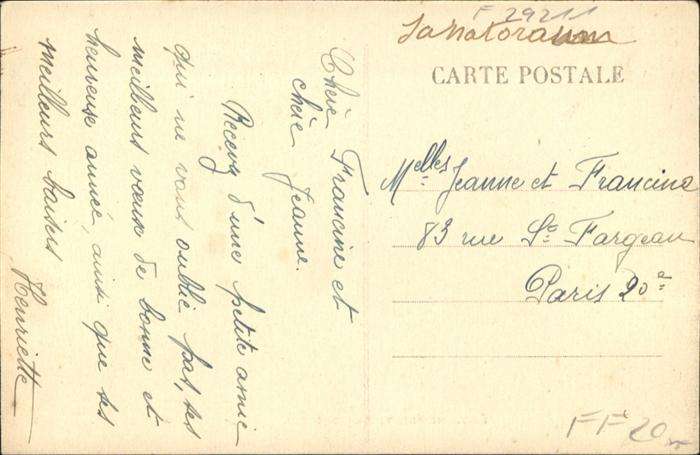 Chère Francine et
chère Jeanne.
Recevez d'une petite amie
qui ne vous oublie pas, ses
meilleurs vœux de bonne et
heureuse année, ainsi que ses
meilleurs baisers
Henriette
F 29211
Sanatorium
CARTE POSTALE
Melles Jeanne et Francine
83 rue St Fargeau
Paris 20e
FF 20